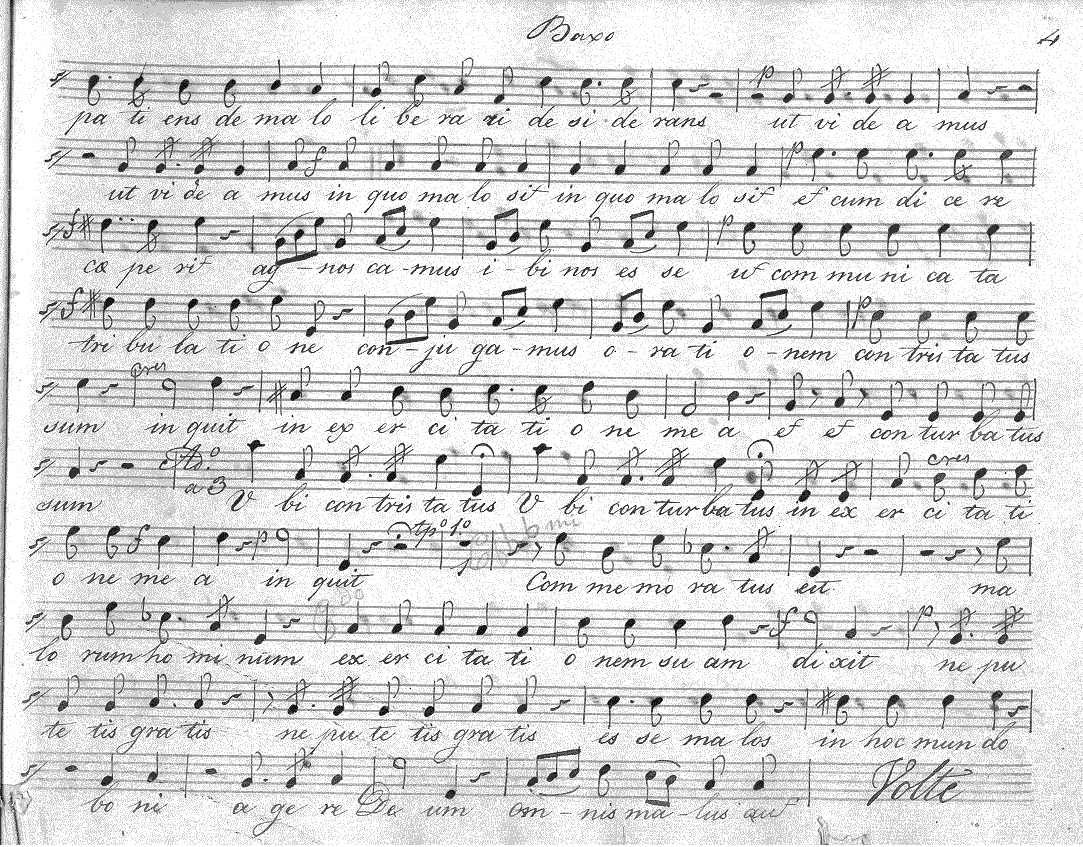 Baxo 4
pa ti ens de ma lo li be ra ri de si de rans ut vi de a mus
ut vi de a mus in quo ma lo sit in quo ma lo sit et cum di ce re
cæ pe rit ag - nos ca - mus i - bi nos es se ut com mu ni ca ta
tri bu la ti o ne con - ju ga - mus o - ra ti o - nem con tris ta tus
cres
sum in quit in ex er ci ta ti o ne me a et et con tur ba tus
a 3 cres
sum V bi con tris ta tus V bi con tur ba tus in ex er ci ta ti
tpº 1º
o ne me a in quit Com me mo ra tus est ma
lo rum ho mi num ex er ci ta ti o nem su am di xit ne pu
te tis gra tis ne pu te tis gra tis es se ma los in hoc mun do
bo ni a ge re De um om - nis ma - lus aut Volte